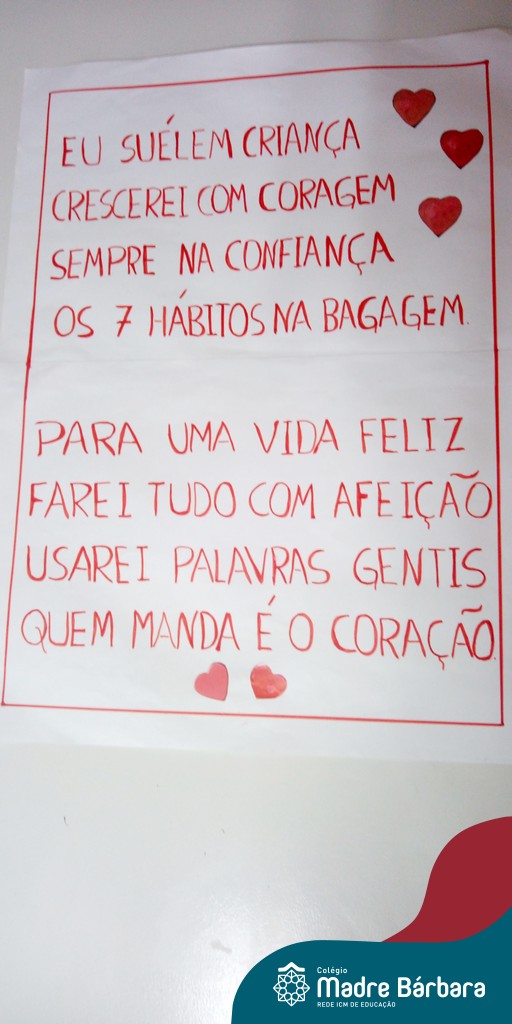 EU SUÉLEM CRIANÇA
CRESCEREI COM CORAGEM
SEMPRE NA CONFIANÇA
OS 7 HÁBITOS NA BAGAGEM.
PARA UMA VIDA FELIZ
FAREI TUDO COM AFEIÇÃO
USAREI PALAVRAS GENTIS
QUEM MANDA É O CORAÇÃO.
Colégio
Madre Bárbara
REDE ICM DE EDUCAÇÃO